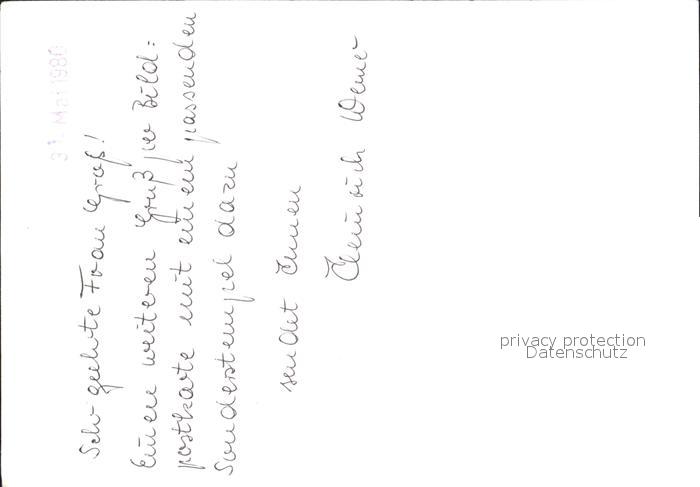 31. Mai 1980
Sehr geehrte Frau Groß!
Einen weiteren Gruß per Bild=
postkarte mit einem passenden
Sonderstempel dazu
sendet Ihnen
Heinrich
privacy protection
Datenschutz